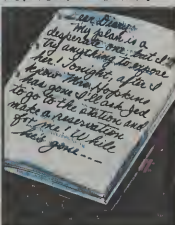 ear Diary:
my plan is a
desperate one but I
try anything to expose
her! Tonight, after I
Miss Hopkins
has gone I'll ask Jed
to go to the station and
make a reservation
for me! While
he's gone ---